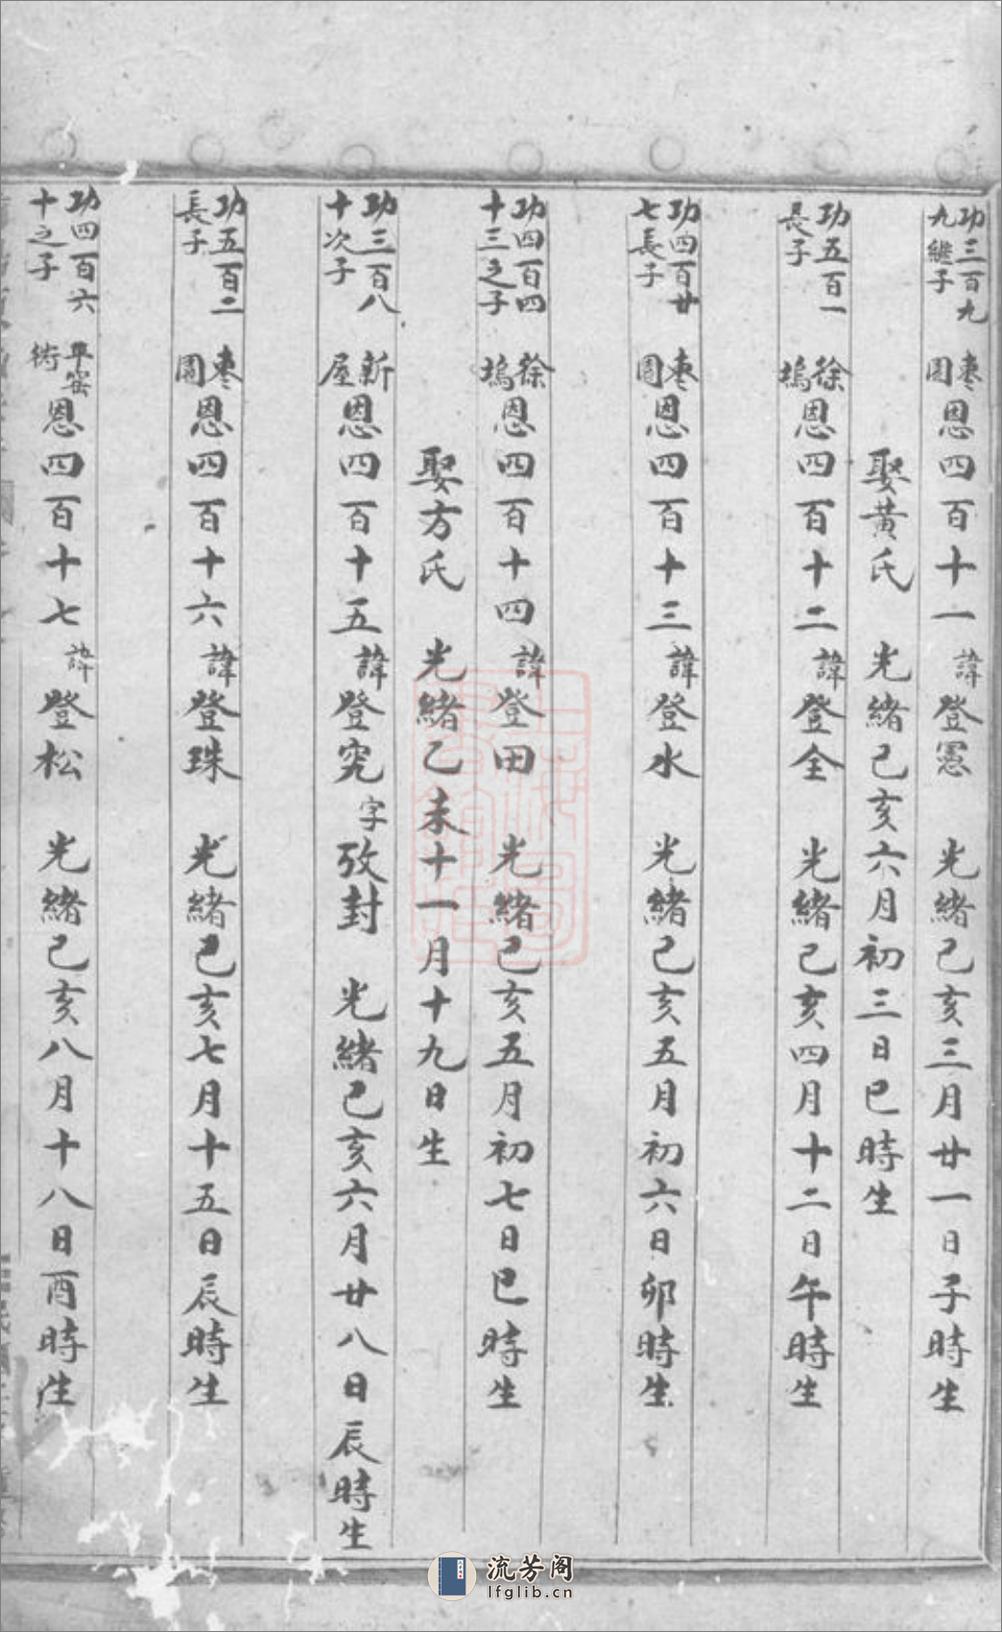 功三百九
九繼子
棗園恩四百十一諱登憲 光緒己亥三月廿一日子時生
娶黃氏 光緒己亥六月初三日巳時生
功五百一
長子
徐塢恩四百十二諱登全 光緒己亥四月十二日午時生
功四百廿
七長子
棗園恩四百十三諱登水 光緒己亥五月初六日卯時生
功四百四
十三之子
徐塢恩四百十四諱登田 光緒己亥五月初七日巳時生
娶方氏 光緒乙未十一月十九日生
功三百八
十次子
新屋恩四百十五諱登究字攷封 光緒己亥六月廿八日辰時生
功五百二
長子
棗園恩四百十六諱登珠 光緒己亥七月十五日辰時生
功四百六
十之子
恩四百十七諱登松 光緒己亥八月十八日酉時生
流芳阁
lfglib.cn